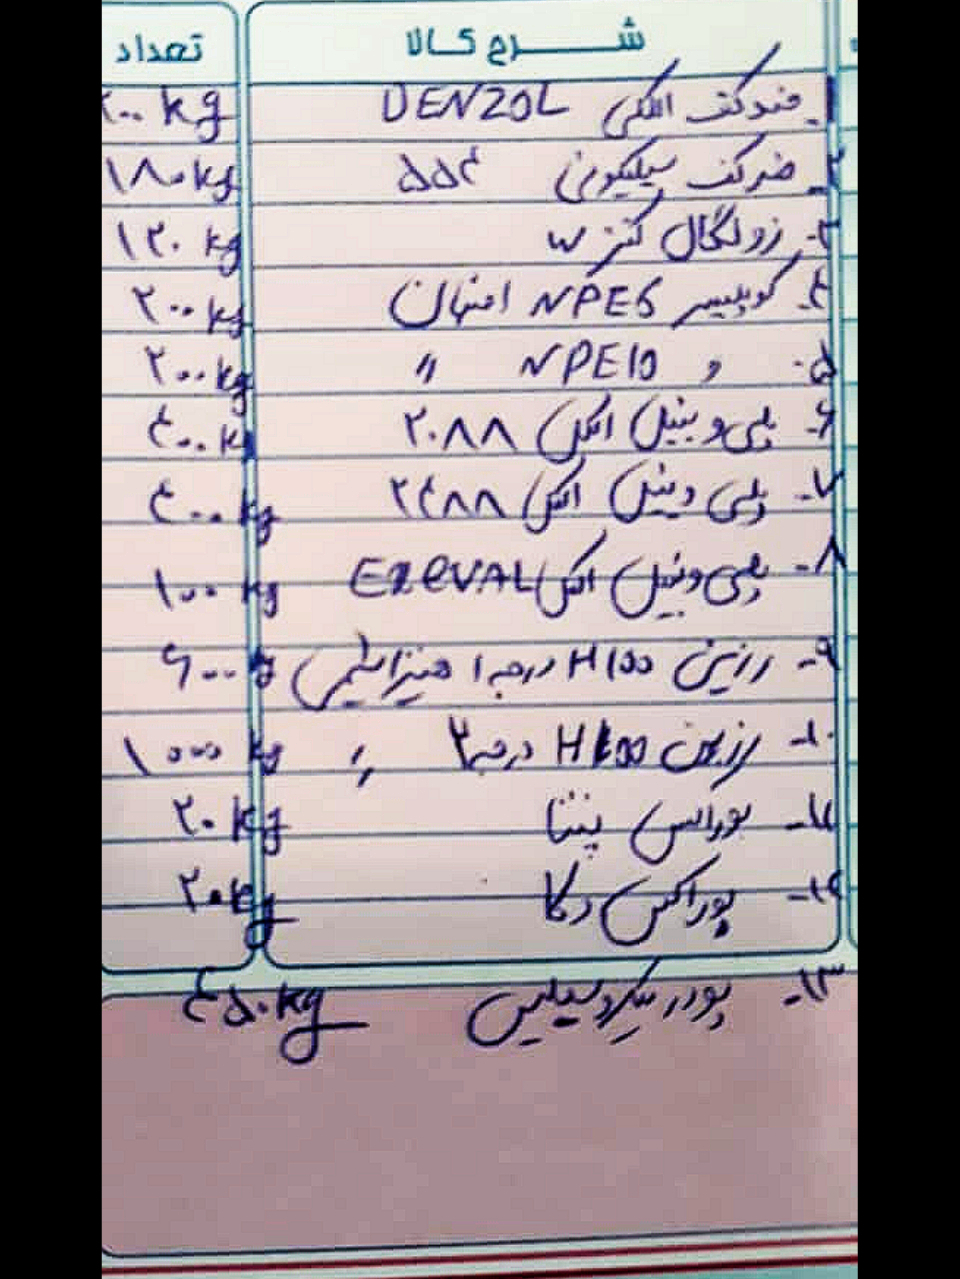 شرح کالا تعداد
۱- ضدکف الکلی DENZOL ۲۰۰ kg
۲- ضدکف سیلیکونی ۵۵۴ ۱۸۰ kg
۳- زولگال کنز W ۱۲۰ kg
۴- کوپلیمر NPE6 اصفهان ۲۰۰ kg
۵- و NPE10 〃 ۲۰۰ kg
۶- پلی وینیل الکل ۲۰۸۸ ۴۰۰ kg
۷- پلی وینیل الکل ۲۴۸۸ ۴۰۰ kg
۸- پلی وینیل الکل EZEVAL ۱۰۰ kg
۹- رزین H100 درجه ۱ ۶۰۰ kg
۱۰- رزین H100 درجه ۲ 〃 ۱۰۰۰ kg
۱۱- بوراکس پنتا ۲۰ kg
۱۲- بوراکس دکا ۲۰ kg
۱۳- پودر میکروسیلیس ۴۵۰ kg